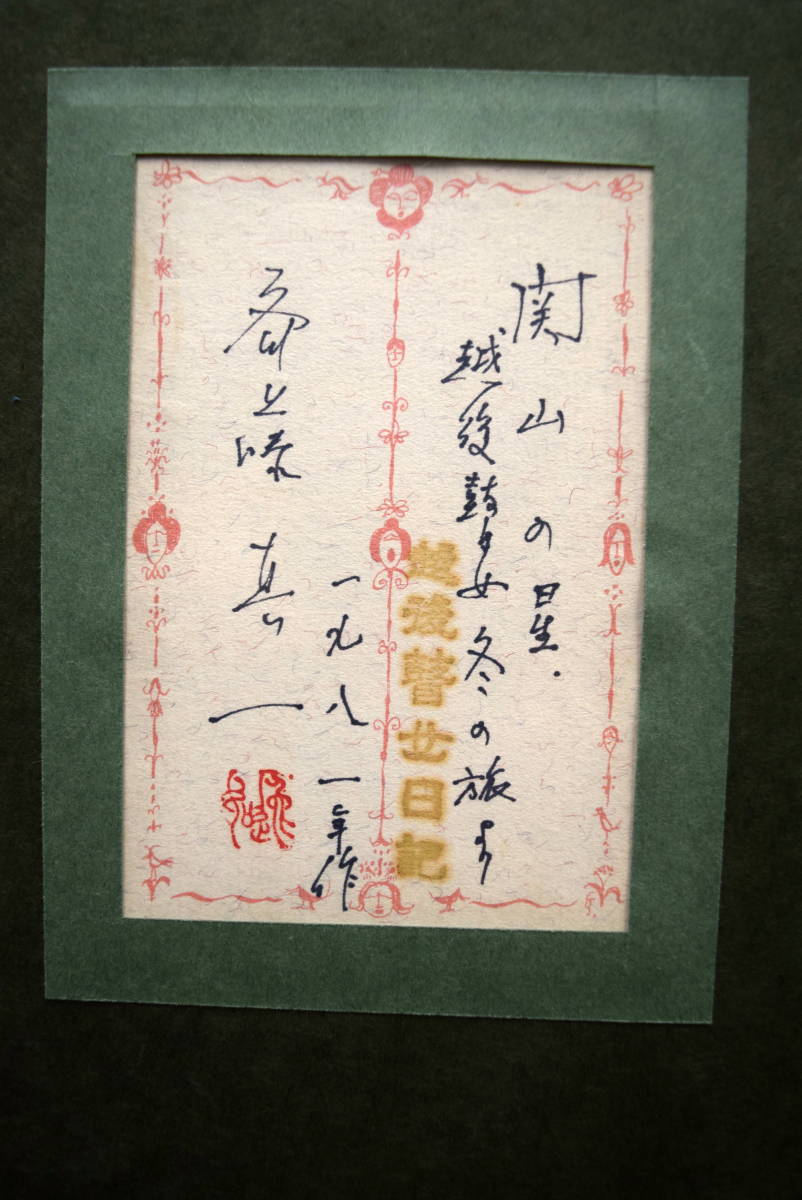 関山の星.
越後瞽女冬の旅より
越後瞽女日記
一九八一年作
斎藤真一